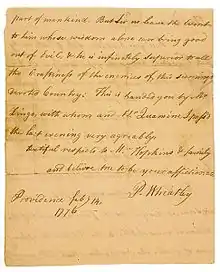 part of mankind. But Sir we leave the event
to him whose wisdom alone can bring good
out of Evil, & he is infinitely superior to all
the Craftiness of the enemies of this seemingly
devoted Country. This is handed you by Mr
Lingo, with whom and Mr Quamine I passd
the last evening very agreably.
dutiful respects to Mrs Hopkins & family
and believe me to be your affectionate
P. Wheatley
Providence Feby 9th
1776